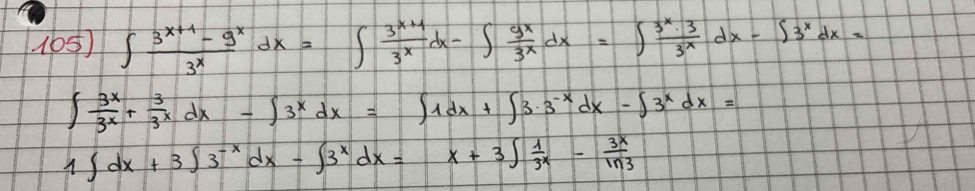 105) ∫ (3^(x+1) - 9^x)/3^x dx = ∫ 3^(x+1)/3^x dx - ∫ 9^x/3^x dx = ∫ (3^x · 3)/3^x dx - ∫ 3^x dx =
∫ 3^x/3^x + 3/3^x dx - ∫ 3^x dx = ∫ 1 dx + ∫ 3 · 3^(-x) dx - ∫ 3^x dx =
1 ∫ dx + 3 ∫ 3^(-x) dx - ∫ 3^x dx = x + 3 ∫ 1/3^x - 3^x/ln3